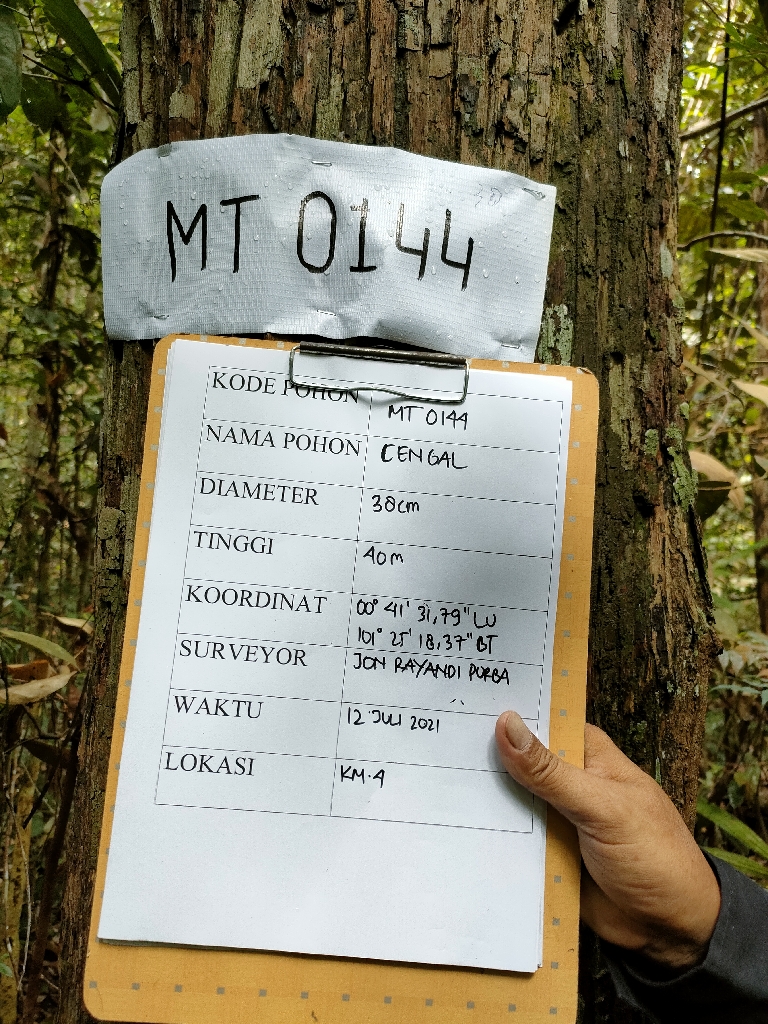 MT 0144
KODE POHON MT 0144
NAMA POHON CENGAL
DIAMETER 38cm
TINGGI 40m
KOORDINAT 00° 41' 31,79" LU
101° 25' 18,37" BT
SURVEYOR JON RAYANDI PURBA
WAKTU 12 JULI 2021
LOKASI KM.4